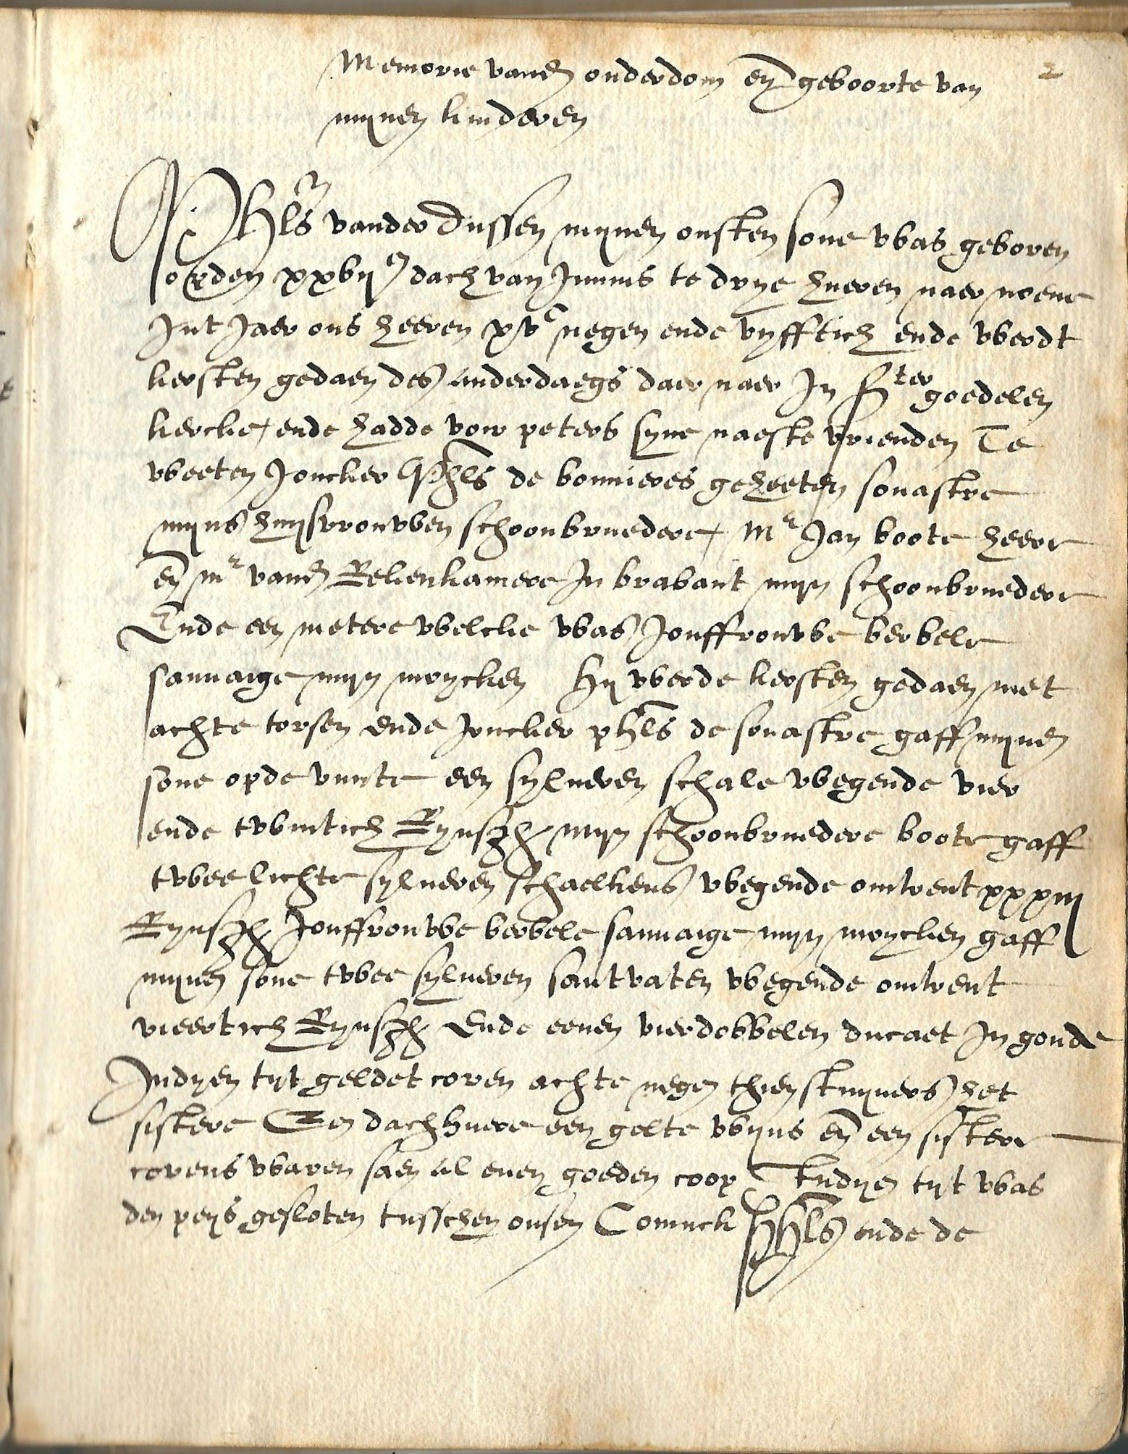 2
Memorie vanden ouderdom en geboorte van
mijnen kinderen
Phls vander Dussen mijnen outsten sone was geboren
opden xxvij en dach van Junius te drye hueren naer noene
Int Jaer ons heeren xvc negen ende vyfftich ende werdt
kersten gedaen des anderdaegs daer naer In Ster goedelen
kercke, ende hadde voer peters syne naeste vrienden Te
weeten Joncker Phls de bonnieres geheeten souastre
mijns huysvrouwen schoonbruedere, Mr Jan boote heere
en mr vand Rekenkamere In brabant mijn schoonbruedere
Ende een metere welcke was Jouffrouwe berbele
sauvaige mijn moycken Hij werde kersten gedaen met
achte torsen ende joncker phls de souastre gaff mijnen
sone opde vunte een sylueren schale wegende vier
ende twintich Rynsch mijn schoonbruedere boote gaff
twee lichte sylueren schaelkens wegende omtrent xxxiij
Rynsch Jouffrouwe berbele sauvaige mijn moycken gaff
mijnen sone twee sylueren sautvaten wegende omtrent
vieertich Rynsch Ende eenen vierdobbelen ducaet In goude
Indyen tyt geldet coren achte negen thien stuyvers het
sistere Een dachhuere een gelte wijns en een sistere
corens waren saen al euen goeden coop Indyen tyt was
den peys gesloten tusschen onsen Coninck Phls ende de